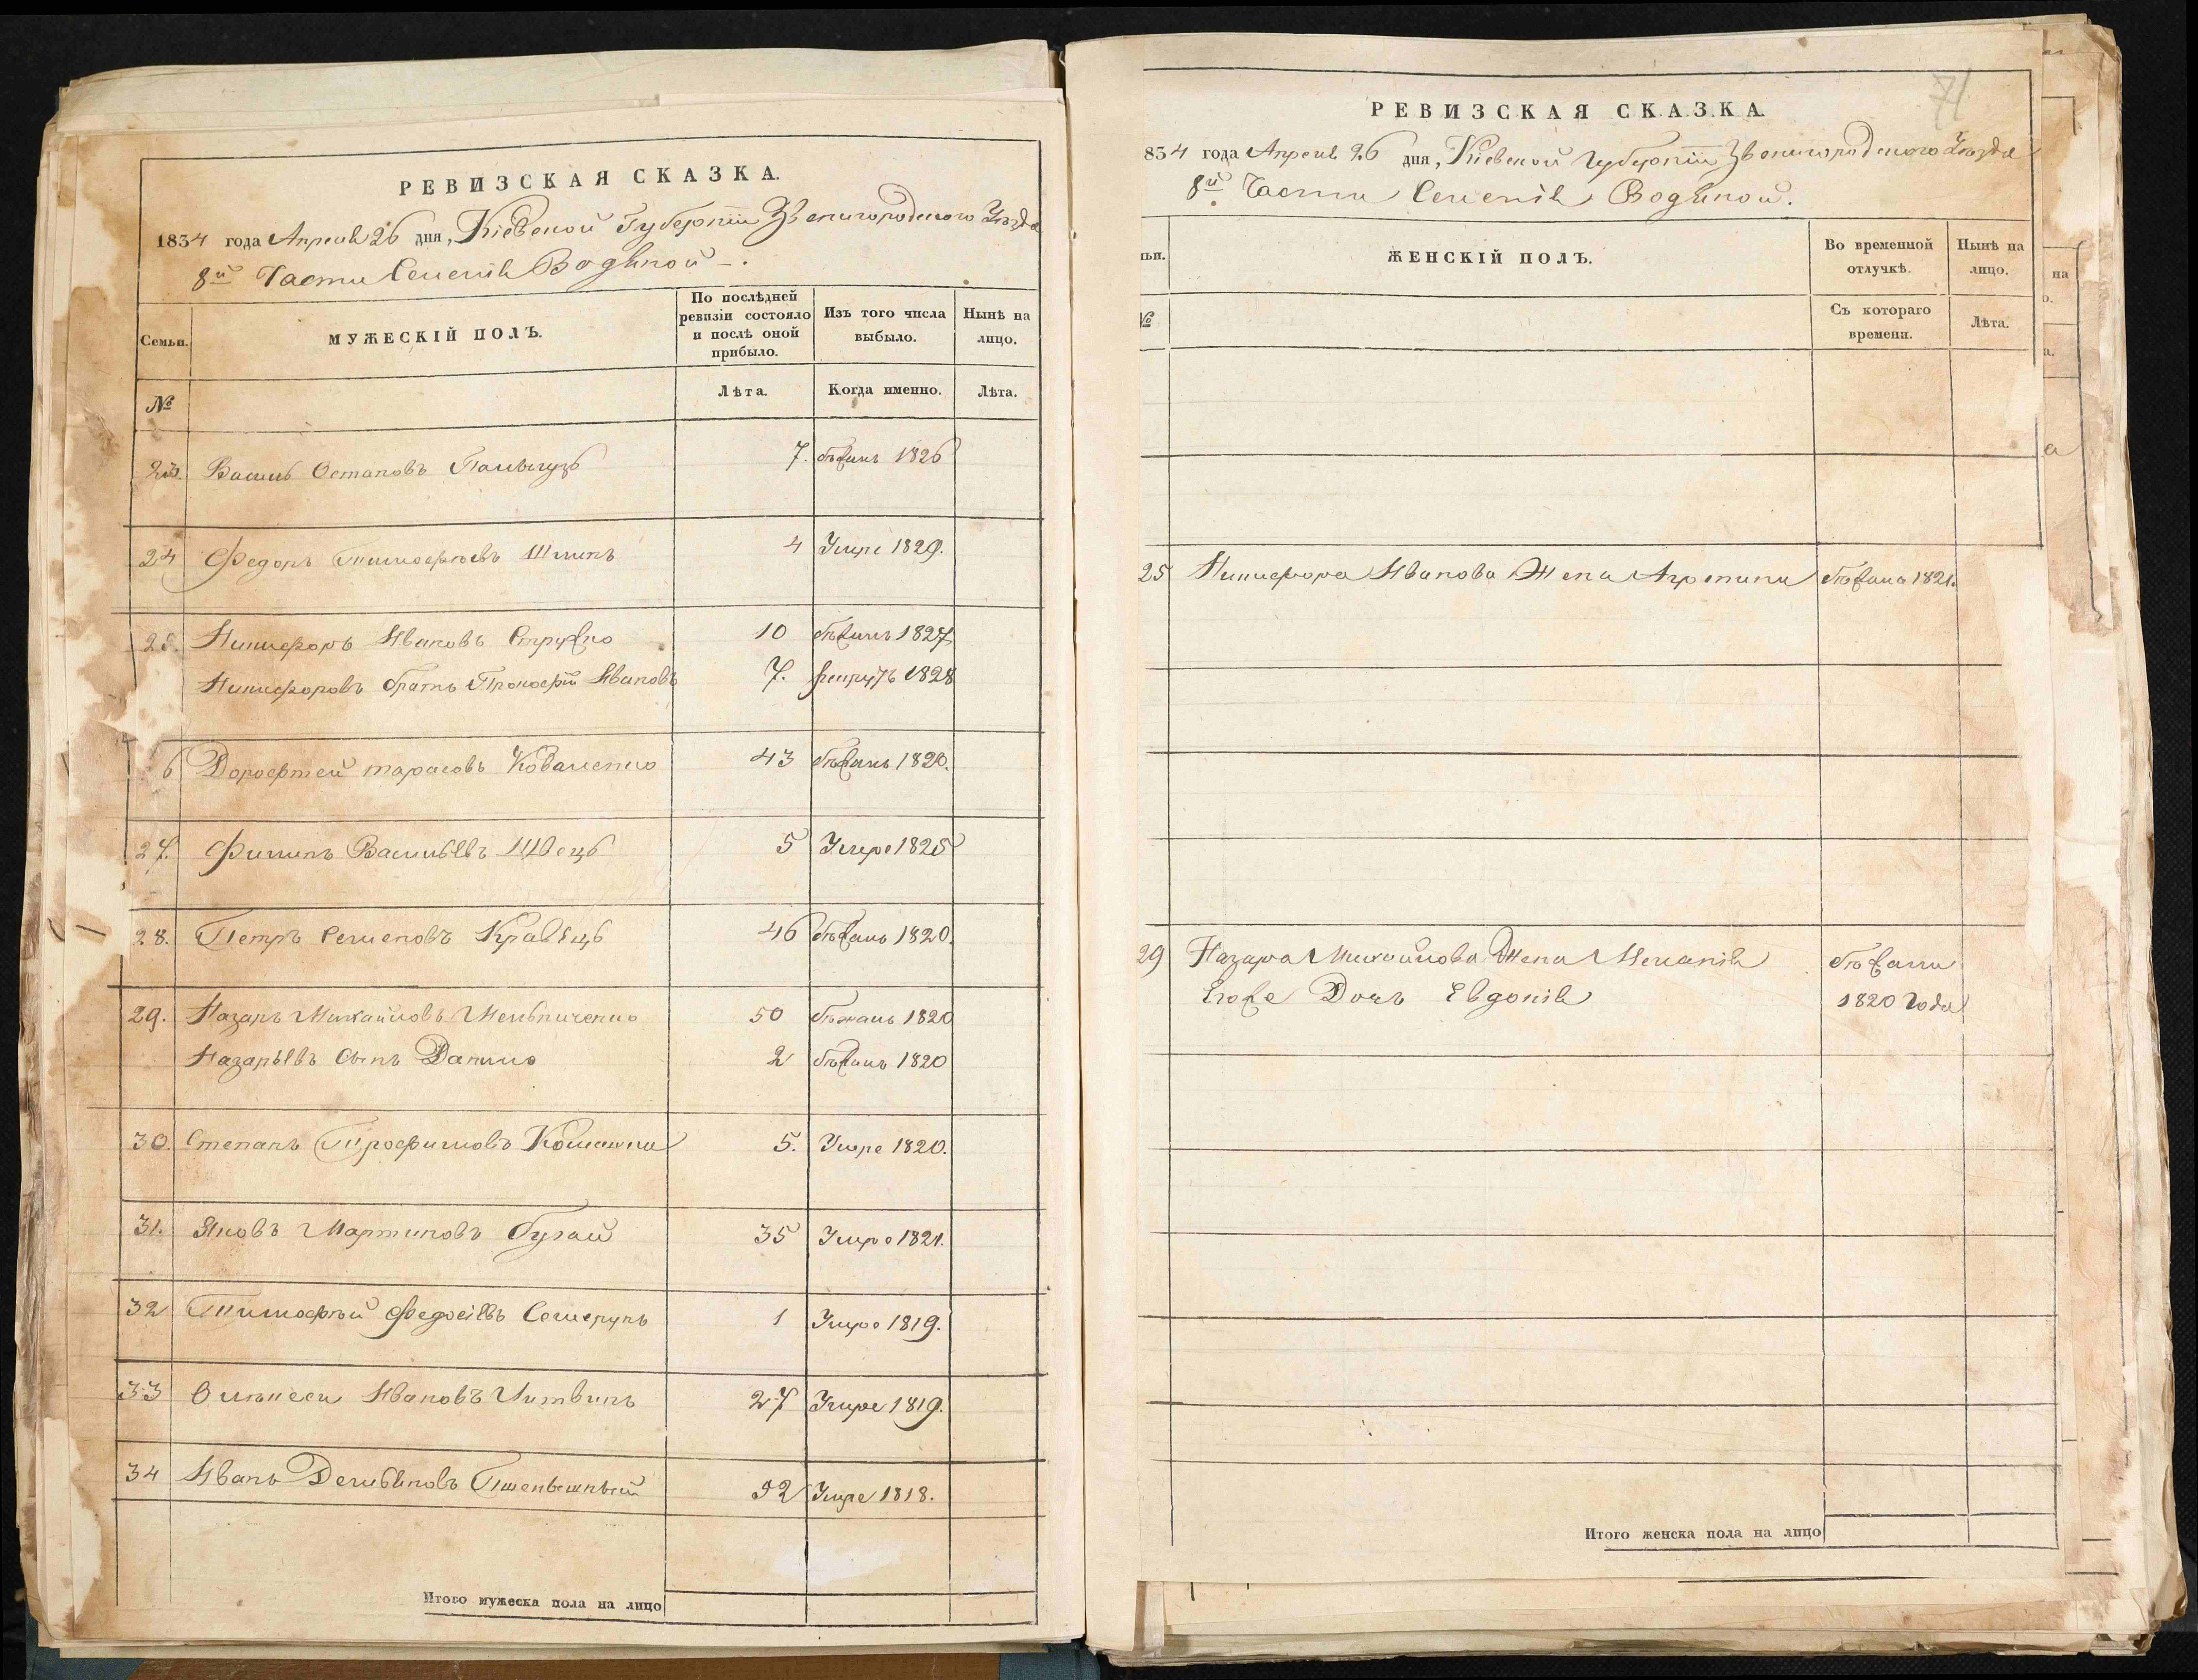 РЕВИЗСКАЯ СКАЗКА.
1834 года Апреля 26 дня, Кіевской Губерніи Звенигородскаго Уѣзда
8й Части Селенія Водяной
Семьи.
МУЖЕСКІЙ ПОЛЪ.
По послѣдней ревизіи состояло и послѣ оной прибыло.
Изъ того числа выбыло.
Нынѣ на лицо.
№
Лѣта.
Когда именно.
Лѣта.
23. Василь Остаповъ 7. бѣжалъ 1826
24 Федоръ Тимофѣевъ Шликъ 4 Умре 1829.
25. Никифоръ Ивановъ Стружко 10 бѣжалъ 1827
Никифоровъ братъ Прокофій Ивановъ 7. рекрутъ 1828
6 Дорофтей тарасовъ Коваленко 43 бѣжалъ 1820.
27. Филипъ Васильевъ Швецъ 5 Умре 1825
28. Петръ Семеновъ Кравецъ 46 бѣжалъ 1820.
29. Назаръ Михайловъ Мельниченко 50 бѣжалъ 1820
Назарѣвъ сынъ Данило 2 бѣжалъ 1820
30. Степанъ Трофимовъ 5. Умре 1820.
31. Яковъ Мартиновъ бугай 35 Умре 1821.
32 Тимофѣй Федосіевъ Семерунъ 1 Умре 1819.
33 Олѣксей Ивановъ Литвинъ 27 Умре 1819.
34 Иванъ Демьяновъ Пшенышный 52 Умре 1818.
Итого мужеска пола на лицо
71
РЕВИЗСКАЯ СКАЗКА.
834 года Апреля 26 дня, Кіевской Губерніи Звенигородскаго Уѣзда
8й Части Селенія Водяной.
ьи.
ЖЕНСКІЙ ПОЛЪ.
Во временной отлучкѣ.
Нынѣ на лицо.
№
Съ котораго времени.
Лѣта.
25 Никифора Иванова Жена Агрепина бѣжала 1821.
29 Назара Михайлова Жена Меланія бѣжали
Егоже Дочь Евдокія 1820 Года
Итого женска пола на лицо